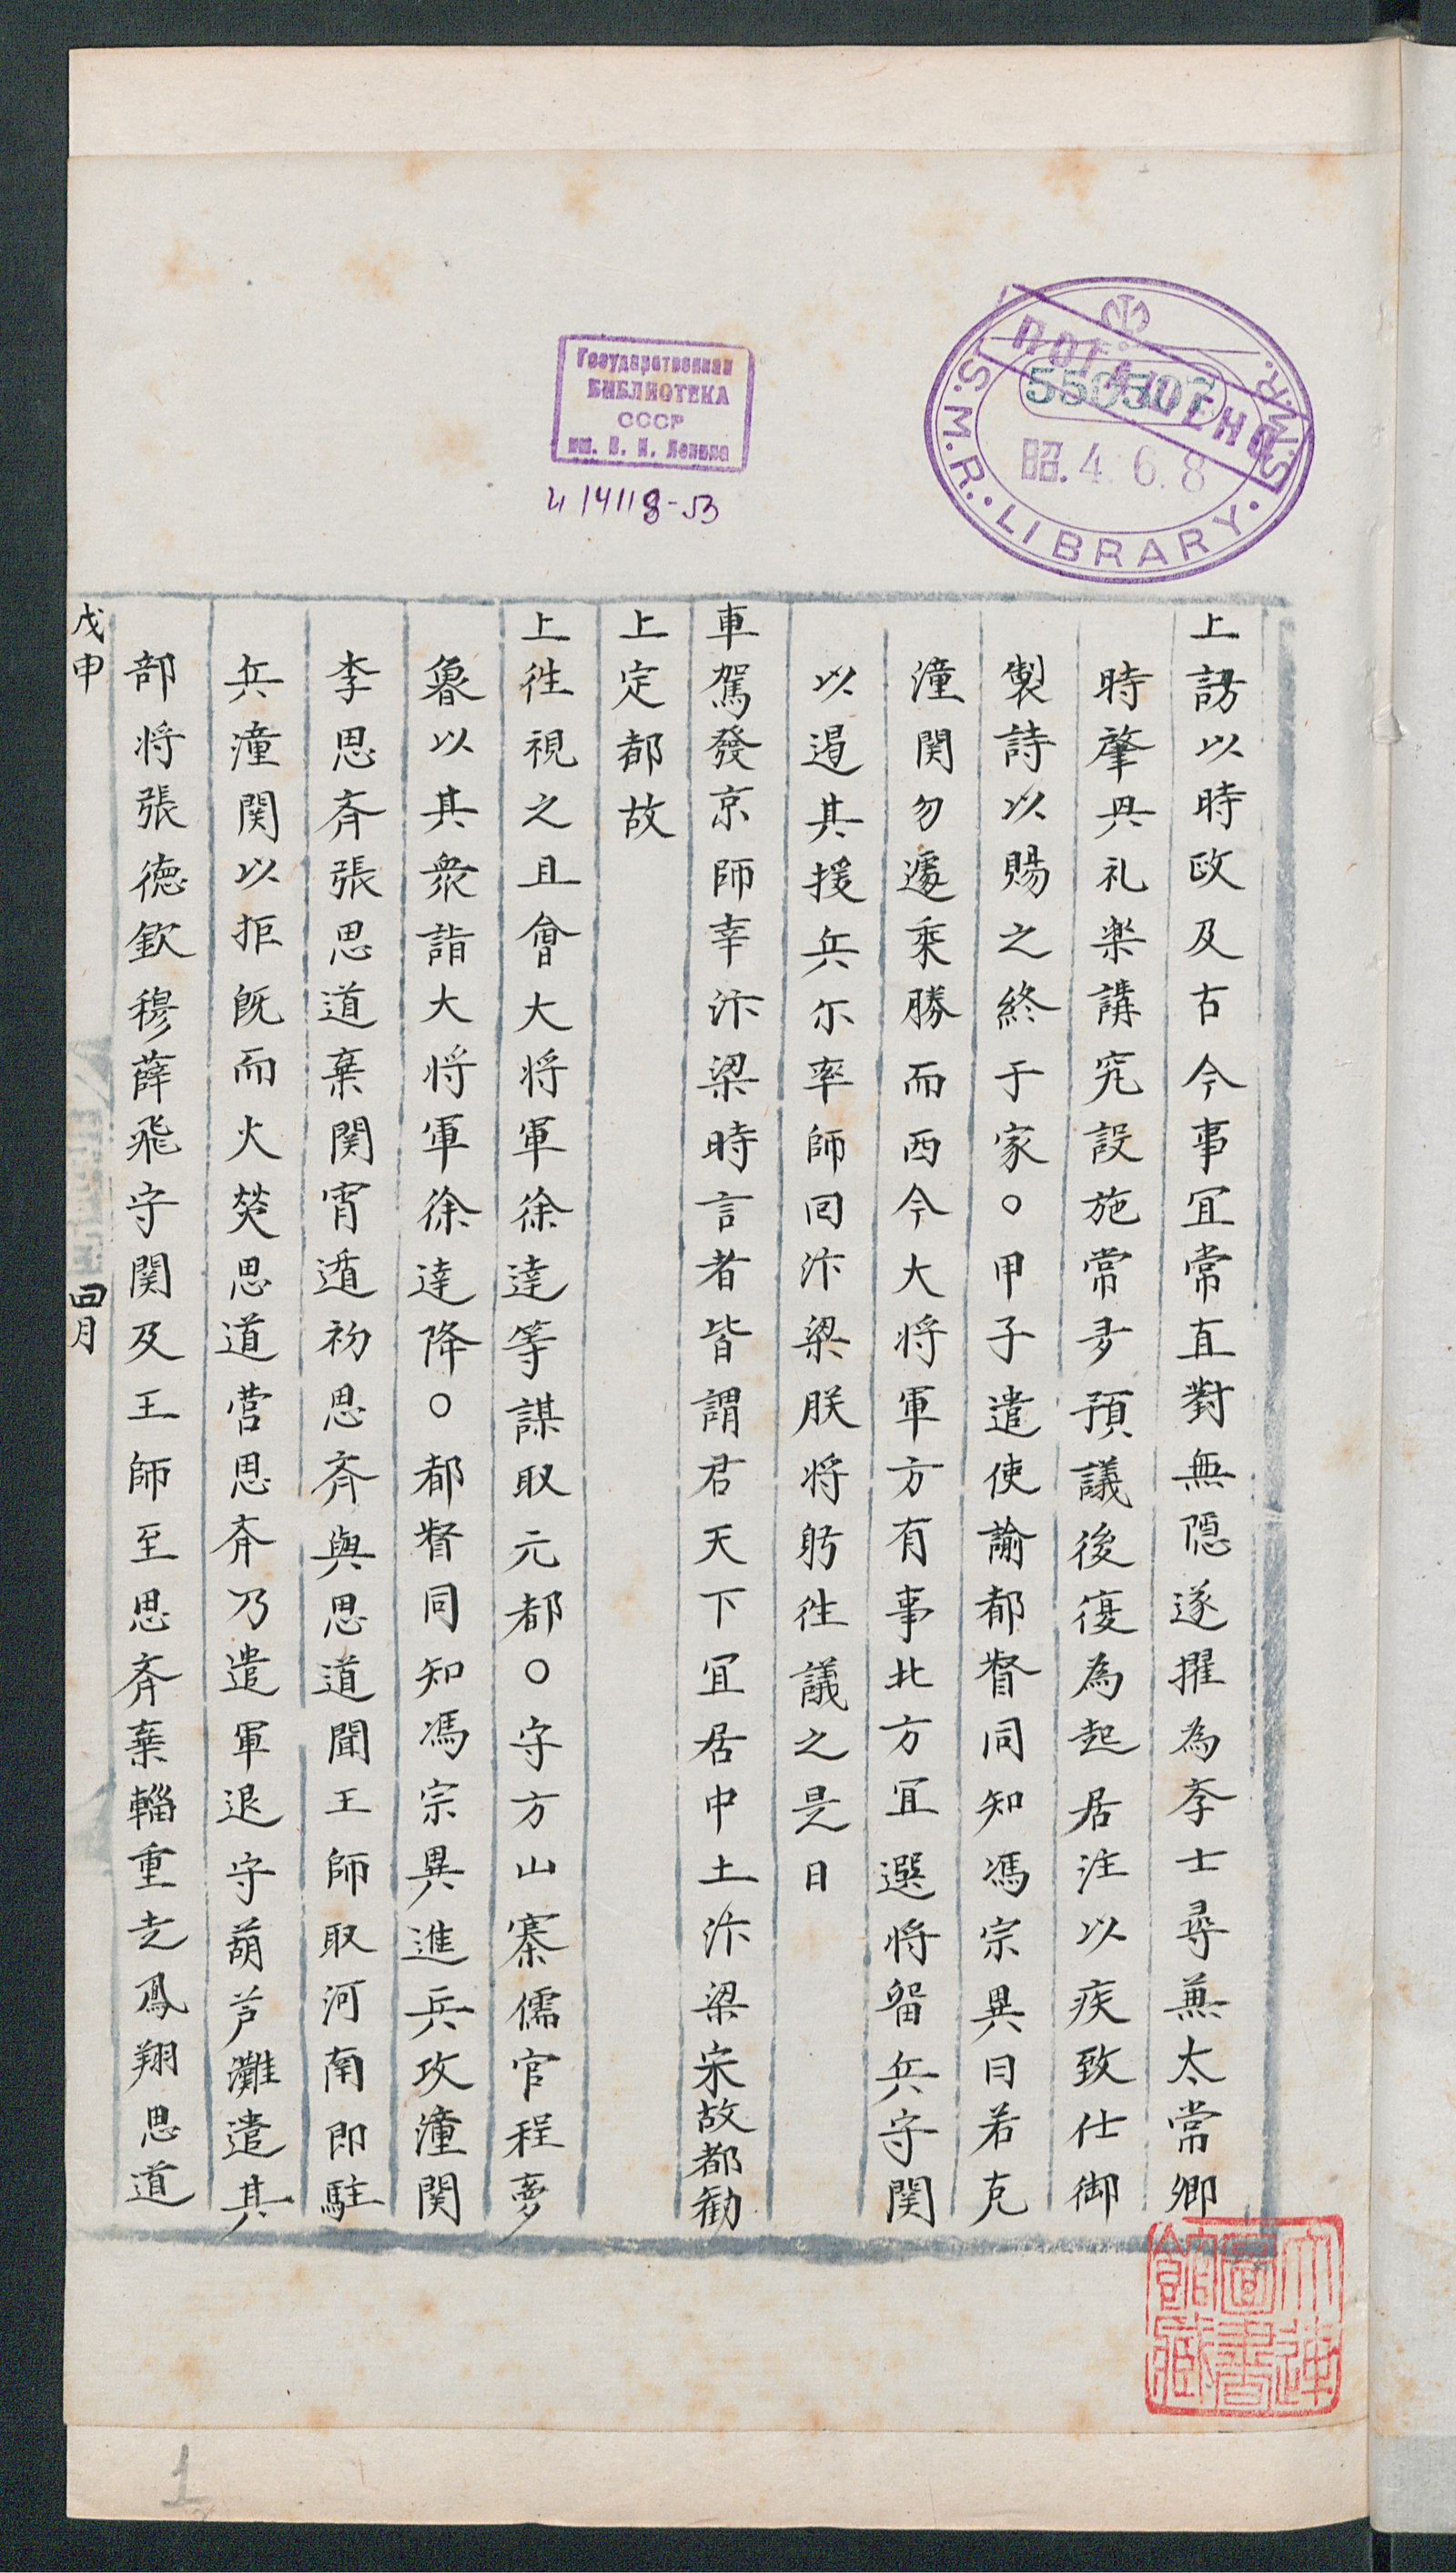 上訪以時政及古今事冝常直對無隠遂擢為李士尋兼太常卿
時肇具礼楽講究設施常多預議後復為起居注以疾致仕御
製詩以賜之終于家○甲子遣使諭都督同知馮宗異曰若克
潼関勿遽乘勝而西今大将軍方有事北方冝選将留兵守関
以遏其援兵尔率師回汴梁朕将躬徃議之是日
車駕發京師幸汴梁時言者皆謂君天下冝居中土汴梁宋故都勧
上定都故
上徃視之且會大将軍徐達等謀取元都○守方山寨儒官程夢
魯以其衆詣大将軍徐達降○都督同知馮宗異進兵攻潼関
李思斉張思道棄関宵遁初思斉與思道聞王師取河南即駐
兵潼関以拒既而火焚思道营思斉乃遣軍退守葫芦灘遣其
部将張德欽穆薛飛守関及王師至思斉棄輜重走鳳翔思道
戊申
四月
Государственная
БИБЛИОТЕКА
СССР
им. В. И. Ленина
и 14118-53
S.M.R. LIBRARY. S.M.R.
ПОГАШЕНО
550507
昭.4.6.8
大連
圖書
館藏
1